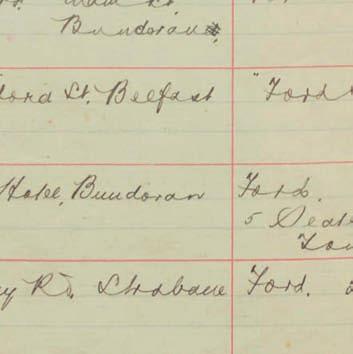 Main St.
Bundoran.
ford St. Belfast "Ford
Hotel, Bundoran Ford.
5 Seate
Tou
y Rd. Strabane Ford.